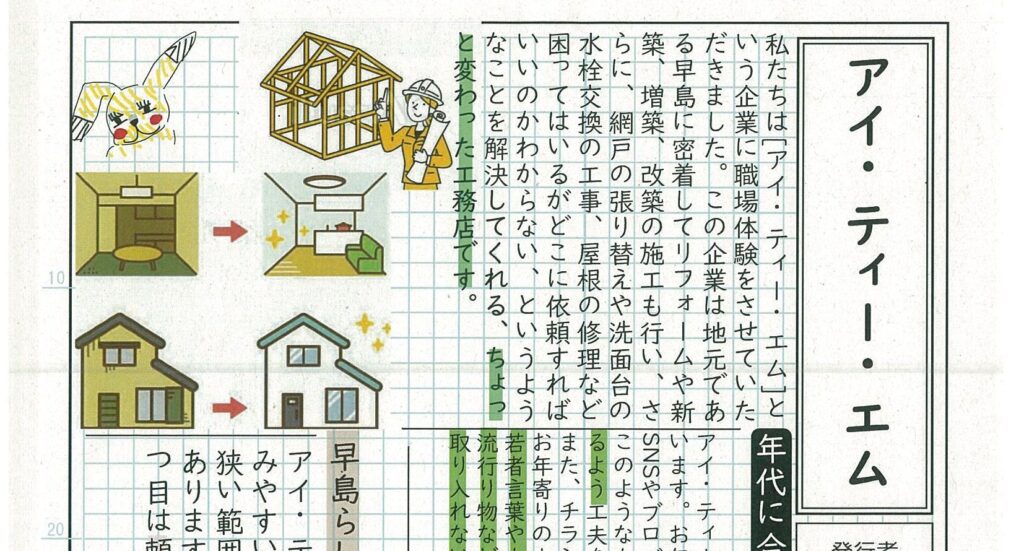 アイ・ティー・エム
発行者
私たちは[アイ・ティー・エム]と
いう企業に職場体験をさせていた
だきました。この企業は地元であ
る早島に密着してリフォームや新
築、増築、改築の施工も行い、さ
らに、網戸の張り替えや洗面台の
水栓交換の工事、屋根の修理など
困ってはいるがどこに依頼すれば
いいのかわからない、というよう
なことを解決してくれる、ちょっ
と変わった工務店です。
年代に
アイ・ティ
います。お
SNSやブロ
このような
るよう工夫
また、チラシ
お年寄りの
若者言葉や
流行り物など
取り入れな
早島ら
アイ・テ
みやすい
狭い範囲
あります
つ目は頼
10
20